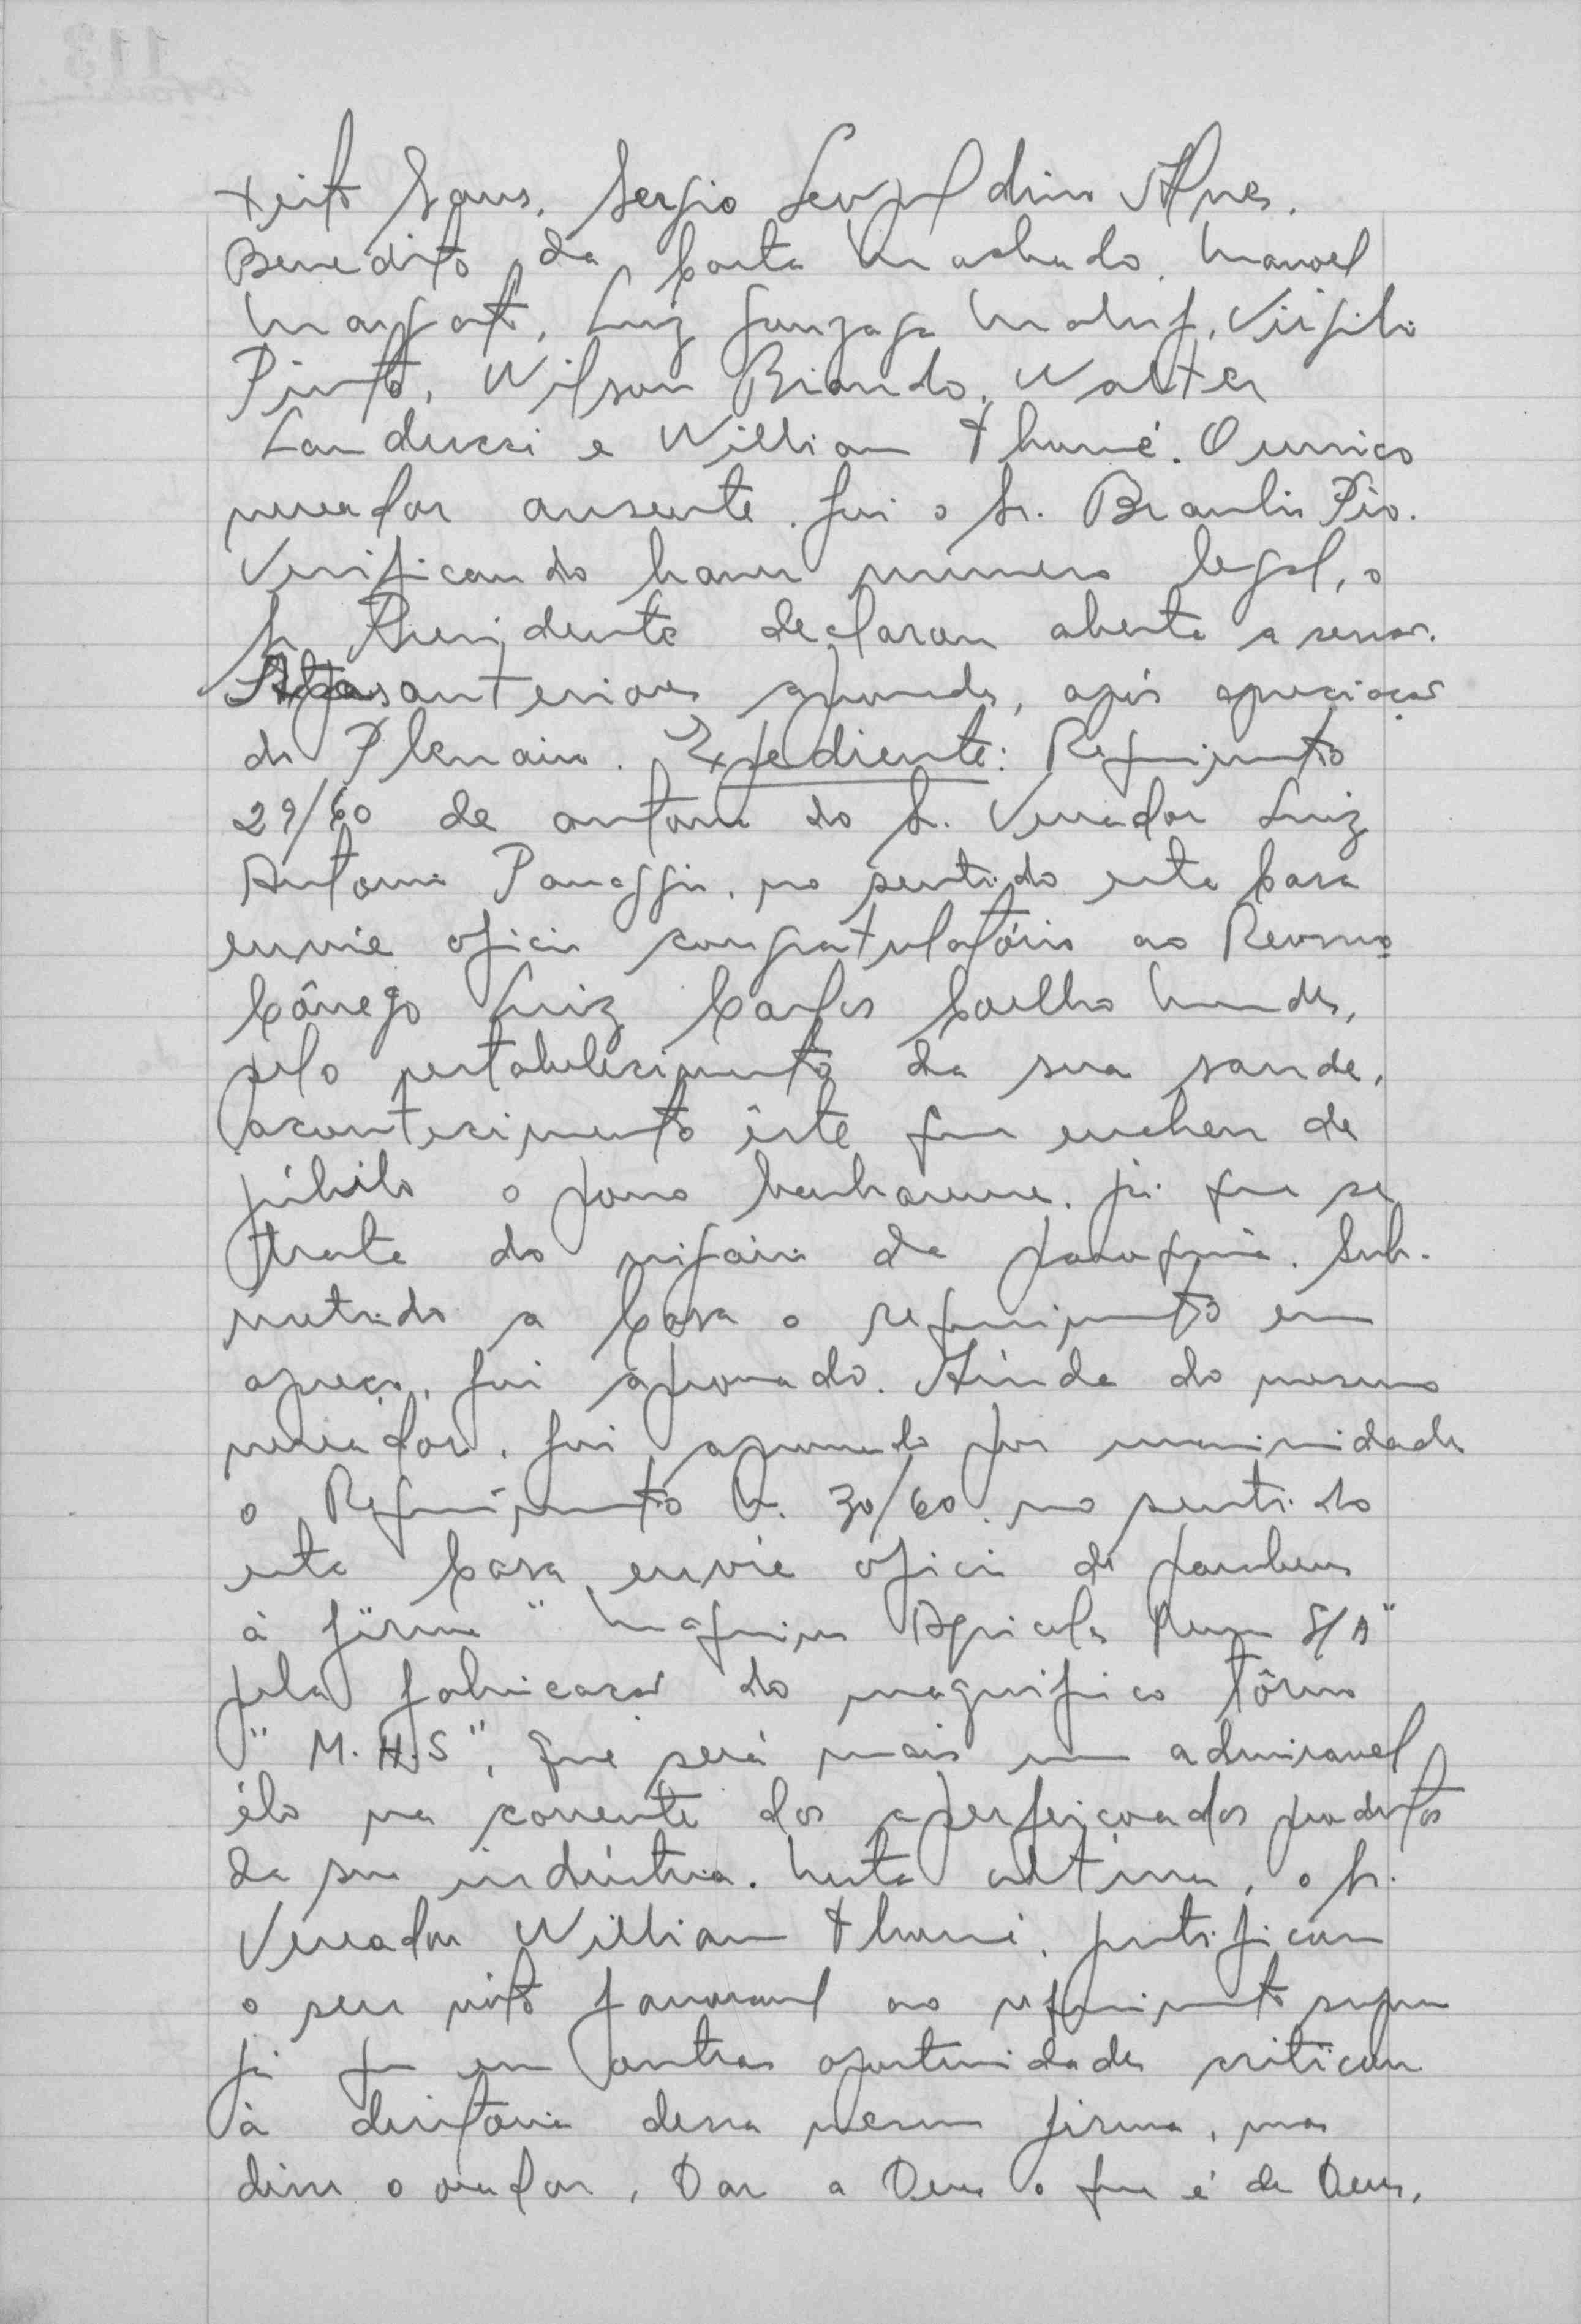 xeito Sans. Sergio Leopoldino Alves.
Benedito da Costa Machado. Manoel
Margato, Luiz Gonzaga Maluf, Virgilio
Pinto, Wilson Biondo, Walter
Landucci e Willian Thomé. O unico
vereador ausente, foi o Sr. Braulio Pio.
Verificando haver numero legal, o
Sr Presidente declarou aberta a sessão.
Atas anteriores aprovadas, após apreciação
do Plenario. Expediente: Requerimento
29/60 de autoria do Sr. Vereador Luiz
Antonio Panaggio, no sentido esta Casa
envie oficio congratulatório ao Revmo
Cônego Luiz Carlos Coelho Mendes,
pelo restabelecimento da sua saude,
acontecimento êste que encheu de
júbilo o povo, já que se
trata do vigário da paroquia. Sub-
metido a Casa o requerimento em
apreço, foi aprovado. Ainda do mesmo
vereador, foi aprovado por unanimidade
o Requerimento N. 30/60, no sentido
esta Casa envie oficio de parabens
à firma "Maquinas Agricolas S/A"
pela fabricação do magnifico tôrno
"M.H.S", que será mais um admiravel
élo na corrente dos aperfeiçoados produtos
da sua indústria. Nesta ultima, o Sr.
Vereador Willian Thomé, justificou
o seu vóto favoravel ao requerimento supra
já que em outras oportunidades criticou
à diretoria dessa mesma firma, mas
disse o orador, Dar a Deus o que é de Deus,